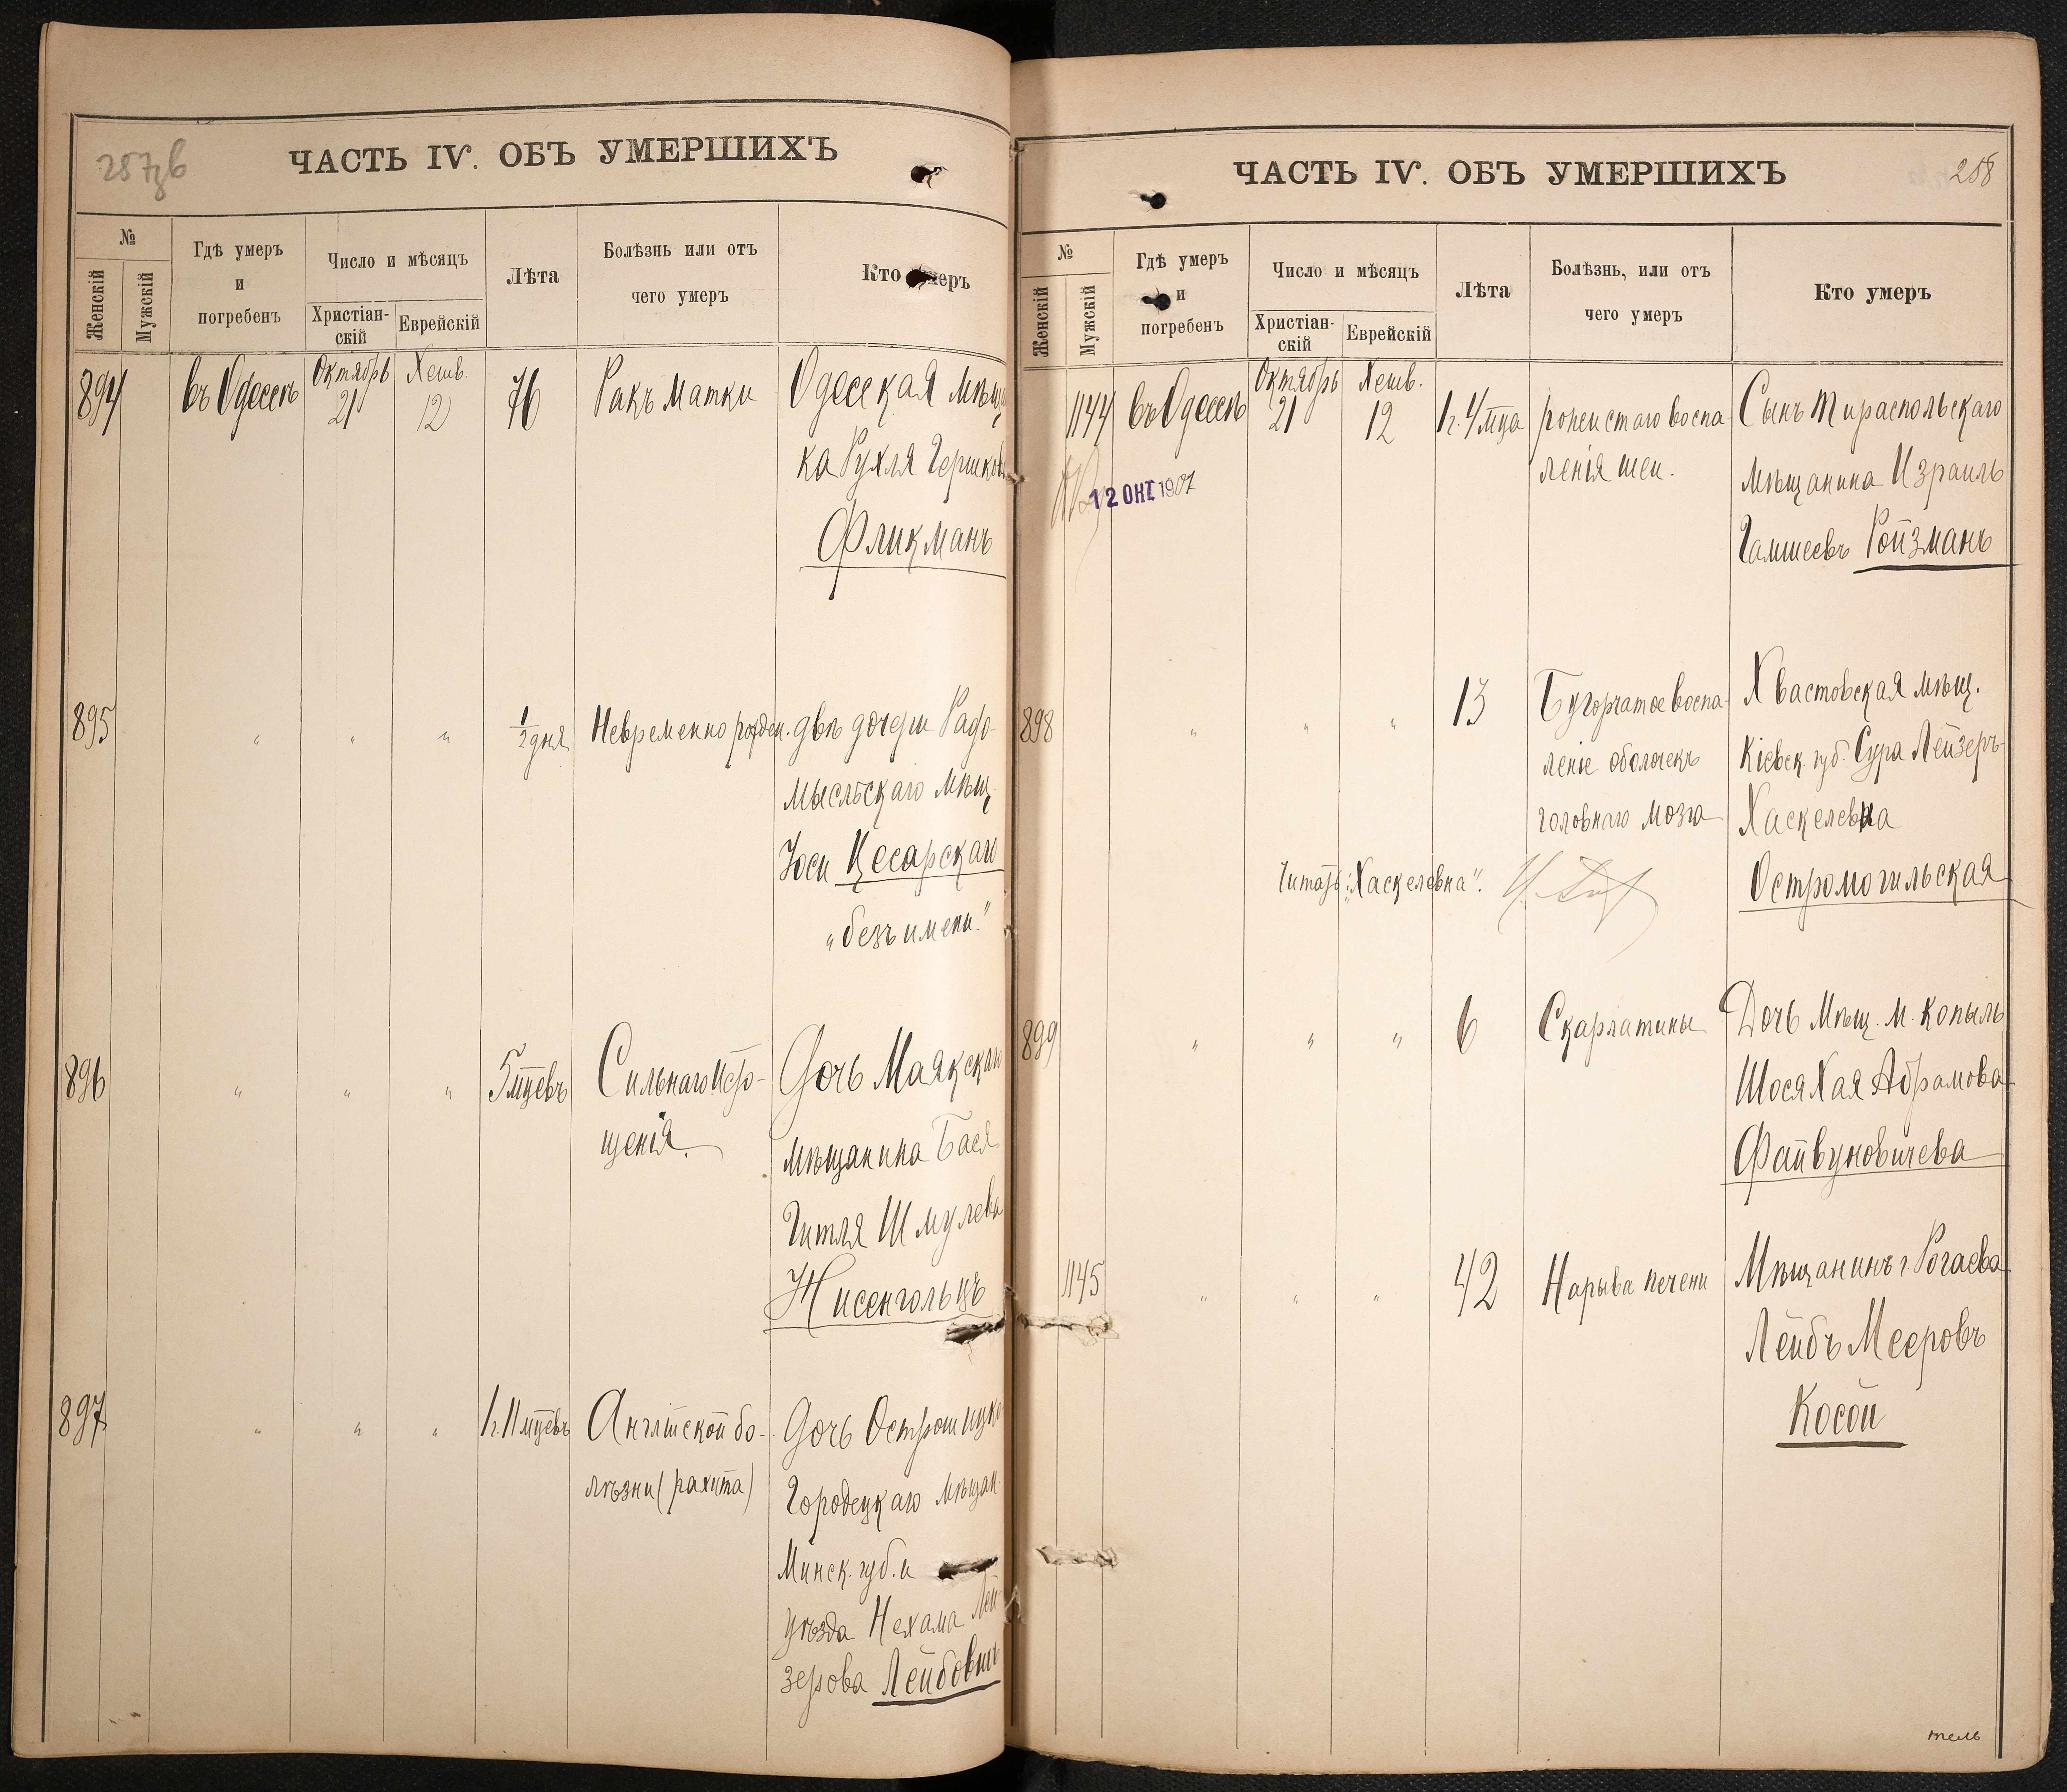 ЧАСТЬ IV. ОБЪ УМЕРШИХЪ
№
Женскій
Мужскій
Гдѣ умеръ
и
погребенъ
Число и мѣсяцъ
Христіан-
скій
Еврейскій
Лѣта
Болѣзнь или отъ
чего умеръ
Кто умеръ
894
въ Одессѣ
Октябрь
21
Хешв.
12
76
Ракъ матки
Одесская мѣщ
ка Рухля Гершков
Фликманъ
895
"
"
"
1/2 дня
Невременно рожден.
двѣ дочери Радо-
мысльскаго мѣщ.
Юси Цесарскаго
"безъ имени"
896
"
"
"
5 мцевъ
Сильнаго исто-
щенія.
Дочь Маякскаго
мѣщанина Бася
Гитля Шмулева
Жисенгольцъ
897
"
"
"
1 г. 11 мцевъ
Англійской бо-
лѣзни (рахита)
Дочь Острошицко
Городецкаго мѣщан.
Минск. губ. и
уѣзда Нехама Лей-
зерова Лейбовичъ
ЧАСТЬ IV. ОБЪ УМЕРШИХЪ
258
№
Женскій
Мужскій
Гдѣ умеръ
и
погребенъ
Число и мѣсяцъ
Христіан-
скій
Еврейскій
Лѣта
Болѣзнь, или отъ
чего умеръ
Кто умеръ
1144
въ Одессѣ
Октябрь
21
Хешв.
12
1 г. 4 мца
рожистаго воспа-
ленія шеи.
Сынъ Тираспольскаго
мѣщанина Израиль
Гамшеевъ Ройзманъ
12 ОКТ 1907
898
"
"
"
13
Бугорчатое воспа-
леніе оболочекъ
головнаго мозга
Хвастовская мѣщ.
Кіевск. губ. Сура Лейзеръ-
Хаскелевна
Остромогильская
Читать: "Хаскелевна".
899
"
"
"
6
Скарлатины
Дочь мѣщ. м. Копыль
Шося Хая Абрамова
Файвуновичева
1145
"
"
"
42
Нарыва печени
Мѣщанинъ г. Рогачева
Лейбъ Мееровъ
Косой
тель